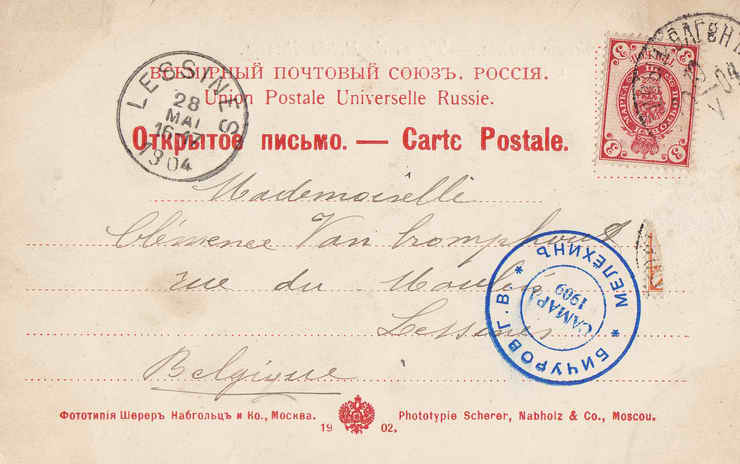 ВСЕМИРНЫЙ ПОЧТОВЫЙ СОЮЗЪ. РОССІЯ.
Union Postale Universelle Russie.
Открытое письмо. — Carte Postale.
LESSINES
28
MAI
1904
3
3
3
04
Mademoiselle
Clémence Van Cromphout
rue du Moulin
Lessines
Belgique
БИЧУРОВ Г. В. * МЕЛЕХИНЪ *
САМАРА
1909
Фототипія Шереръ Набгольцъ и Ко., Москва.
Phototypie Scherer, Nabholz & Co., Moscou.
19 02.